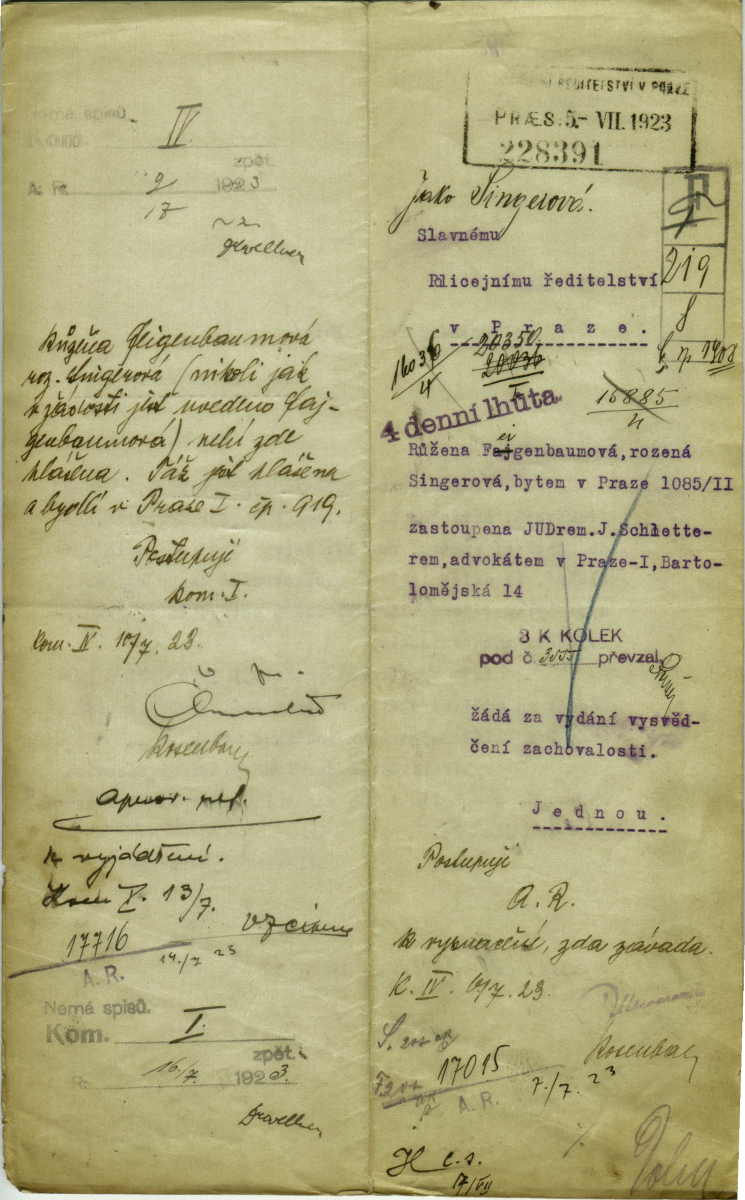 Nemá spisů.
IV
zpět.
A. R. 9/17 1923
Růžena Feigenbaumová
roz. Singerová (nikoli jak
v žádosti jest uvedeno Faj-
genbaumová) není zde
hlášena. Táž jest hlášena
a bydlí v Praze I. čp. 919.
Postupuji
kom. I.
Kom. IV. 10/7. 23.
Rosenbaum
k vyjádření.
Kom I. 13/7.
17716
A.R.
14./7 23
Nemá spisů.
Kom. I.
zpět.
16/7. 1923.
ŘEDITELSTVÍ V PRAZE
PRÆS. 5.- VII. 1923
228391
jako Singerová.
Slavnému
Policejnímu ředitelství
v Praze.
219
8
16036
20350
20036
16885
4 denní lhůta
Růžena Feigenbaumová, rozená
Singerová, bytem v Praze 1085/II
zastoupena JUDrem. J. Schlette-
rem, advokátem v Praze-I, Barto-
lomějská 14
8 K KOLEK
pod č. 3555 převzal
žádá za vydání vysvěd-
čení zachovalosti.
Jednou.
Postupuji
A. R.
k vyznačení, zda závada.
K. IV. 10/7. 23.
17015
A. R.
7./7. 23
17/VII